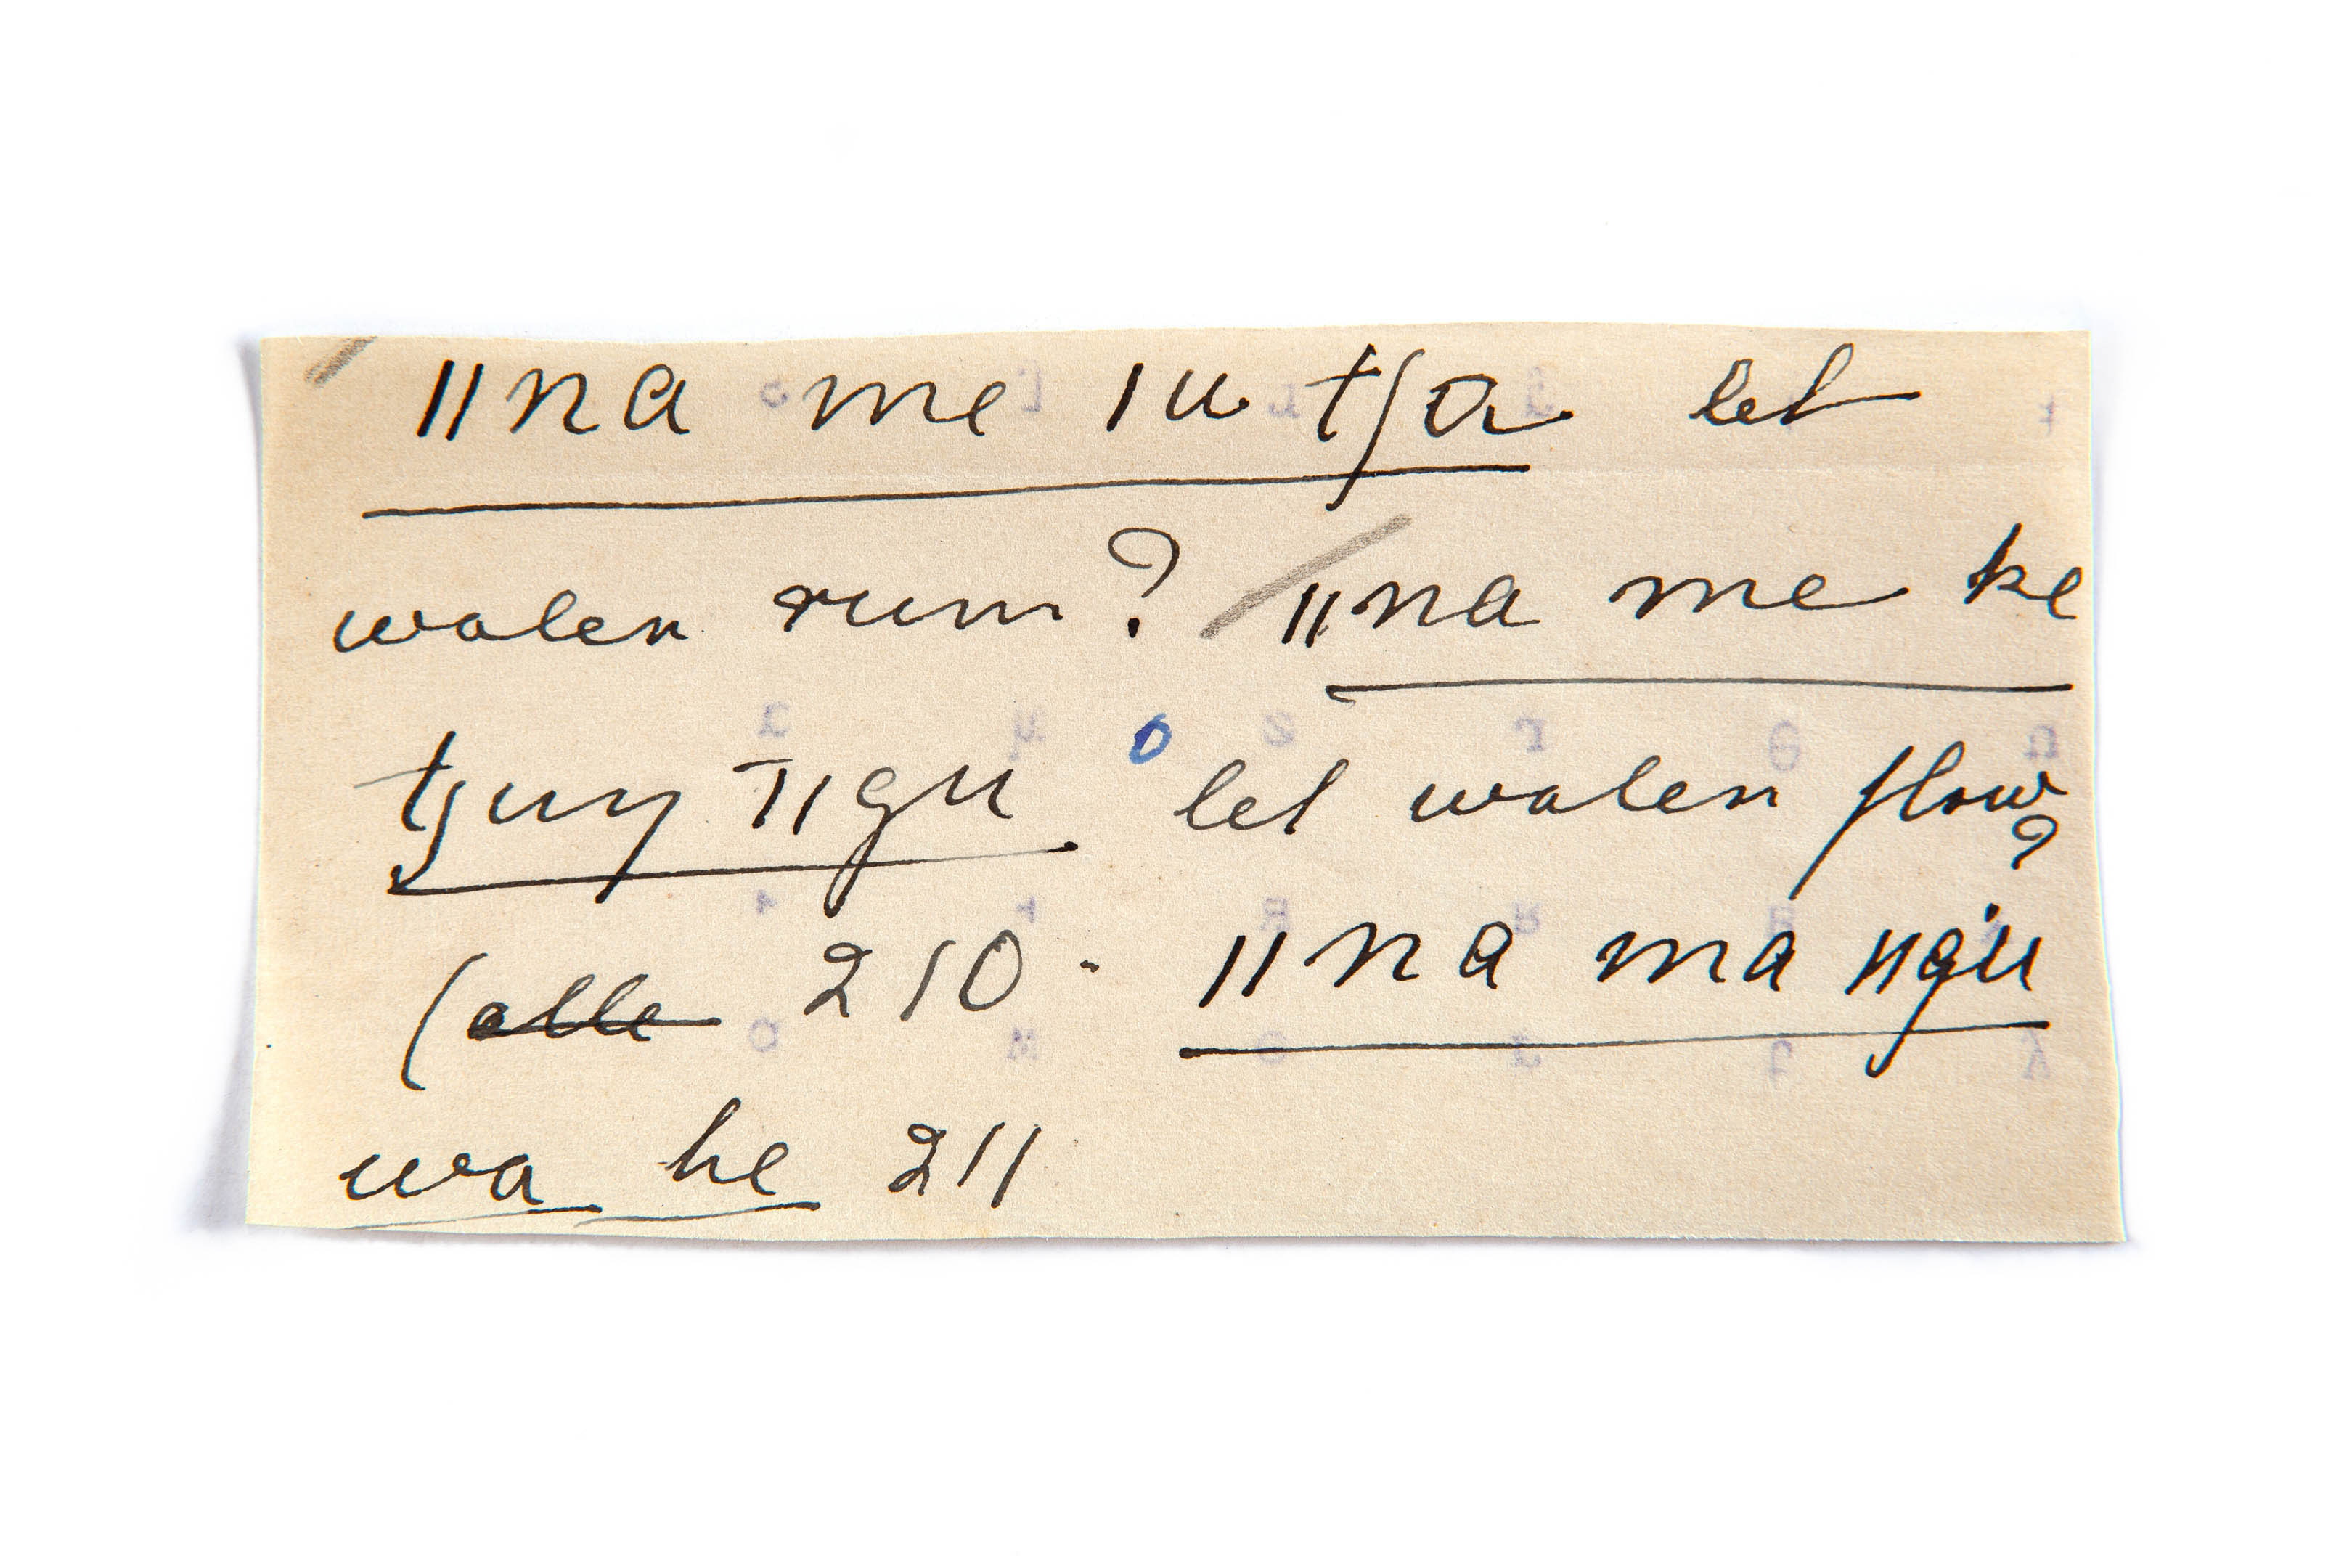 ǁna me ǀu tʃa let
water run? ǁna me ke
tʃuŋ ǁgu let water flow?
(alle 210. ǁna ma ǁgu
wa he 211